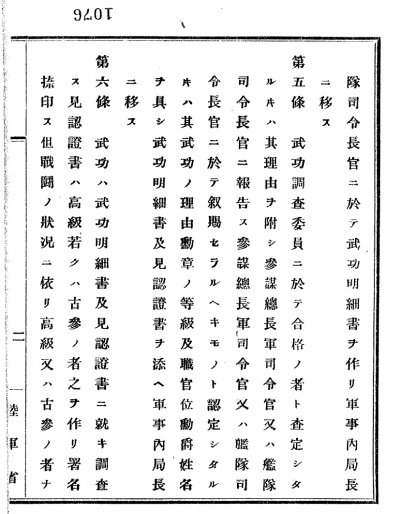 1076
隊司令長官ニ於テ武功明細書ヲ作リ軍事內局長
ニ移ス
第五條 武功調査委員ニ於テ合格ノ者ト査定シタ
ルキハ其理由ヲ附シ參謀總長軍司令官又ハ艦隊
司令長官ニ報告ス參謀總長軍司令官又ハ艦隊司
令長官ニ於テ叙賜セラルヘキモノト認定シタル
キハ其武功ノ理由勳章ノ等級及職官位勳爵姓名
ヲ具シ武功明細書及見認證書ヲ添ヘ軍事內局長
ニ移ス
第六條 武功ハ武功明細書及見認證書ニ就キ調査
ス見認證書ハ高級若クハ古參ノ者之ヲ作リ署名
捺印ス但戰鬪ノ狀況ニ依リ高級又ハ古參ノ者ナ
二
陸軍省